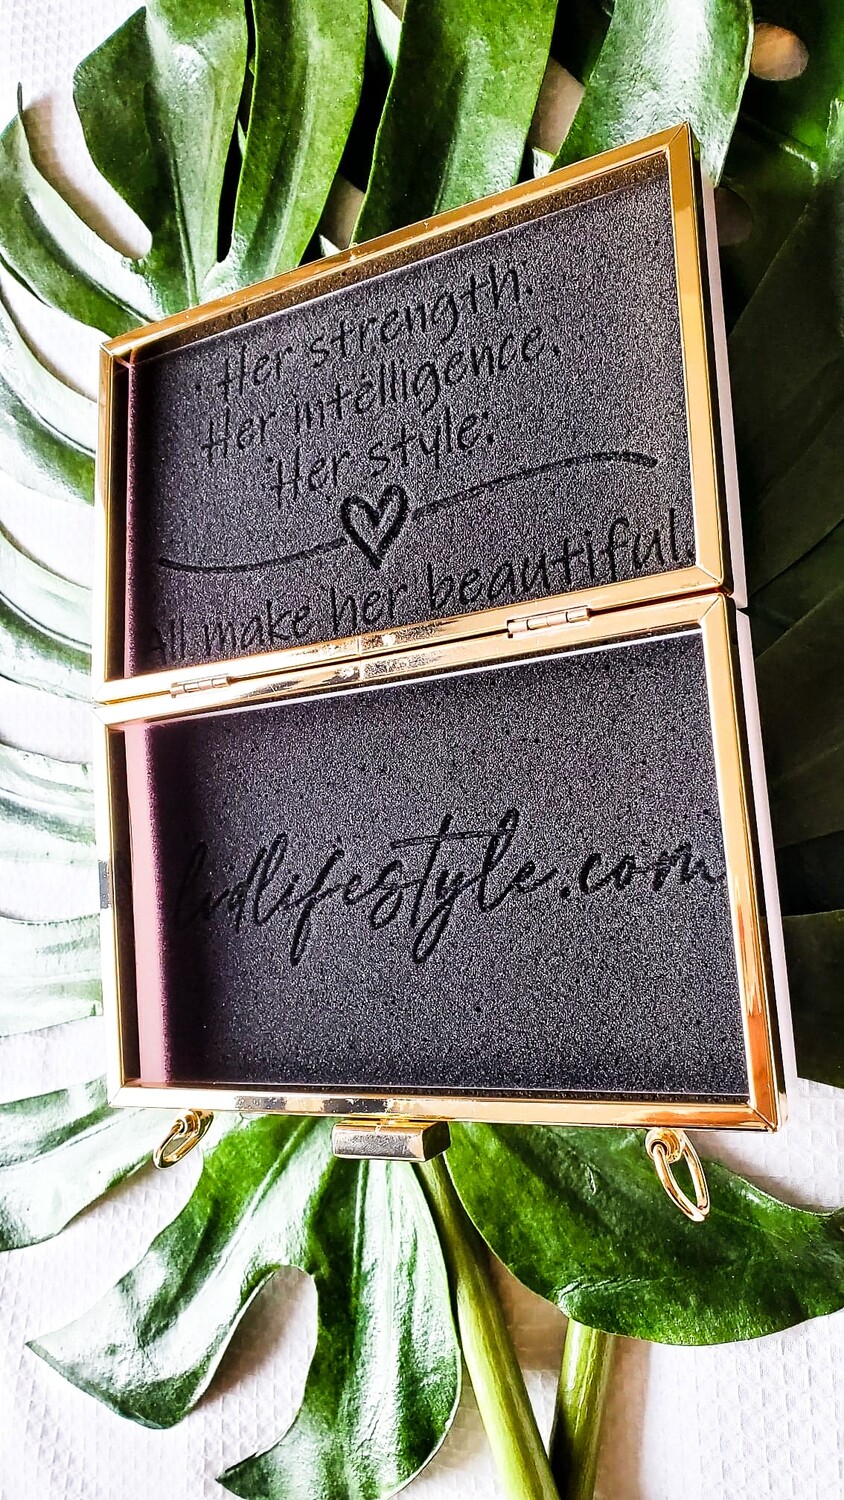 Her strength.
Her intelligence.
Her style.
All make her beautiful.
lvdlifestyle.com